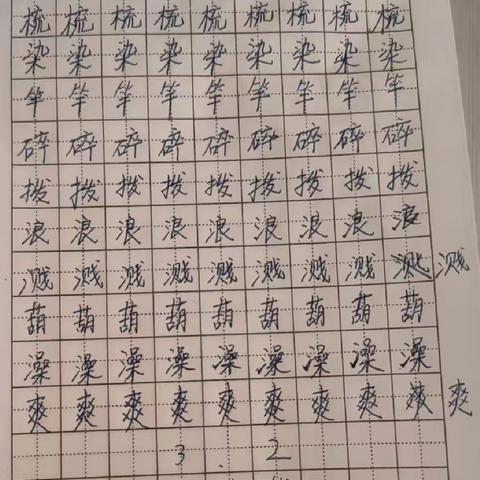 梳梳梳梳梳梳梳梳梳
染染染染染染染染染
竿竿竿竿竿竿竿竿竿
碎碎碎碎碎碎碎碎碎
拨拨拨拨拨拨拨拨拨
浪浪浪浪浪浪浪浪浪
溅溅溅溅溅溅溅溅溅溅
葫葫葫葫葫葫葫葫葫
澡澡澡澡澡澡澡澡澡
爽爽爽爽爽爽爽爽爽爽
3.2